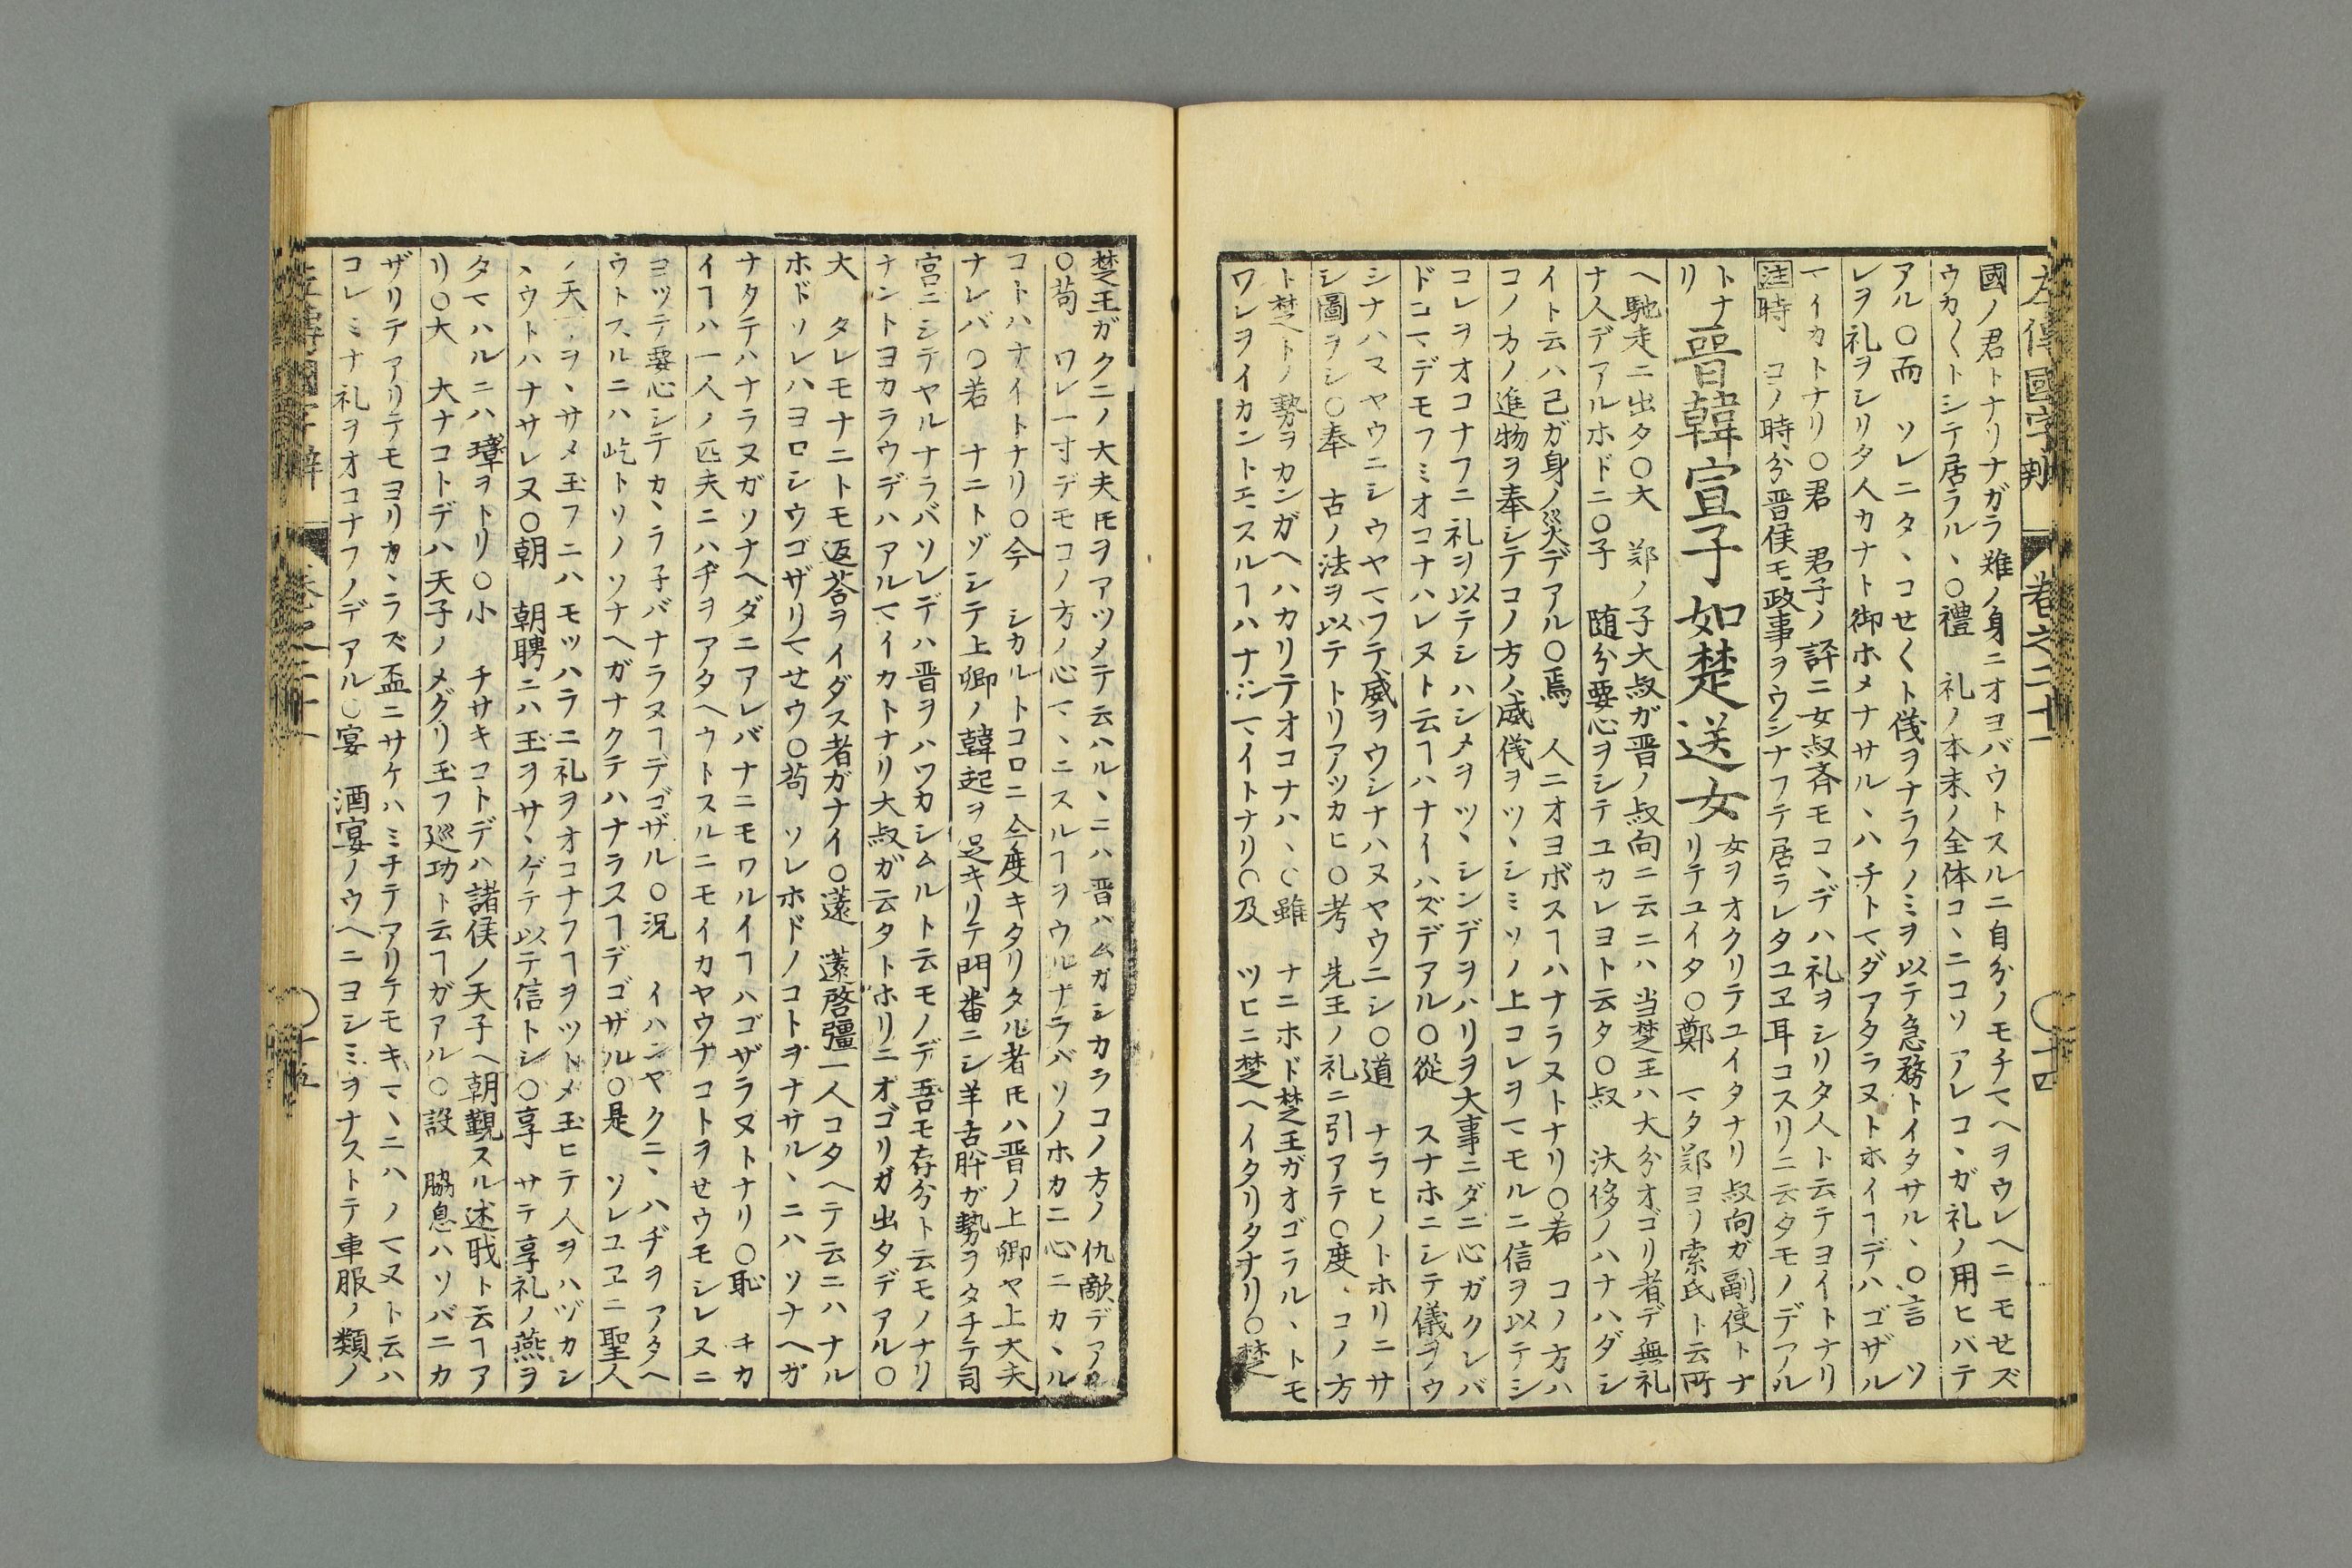 左傳國字辨 卷之二十一 〇十四
國ノ君トナリナガラ難ノ身ニオヨバウトスルニ自分ノモチマヘヲウレヘニモせズ
ウカ〱トシテ居ラル丶〇禮 礼ノ本末ノ全体コ丶ニコソアレコ丶ガ礼ノ用ヒバテ
アル〇而 ソレニタ丶コせ〱ト儀ヲナラフノミヲ以テ急務トイタサル丶〇言 ソ
レヲ礼ヲシリタ人カナト御ホメナサル丶ハチトマダアタラヌトホイヿデハゴザル
マイカトナリ〇君 君子ノ評ニ女叔斉モコ丶デハ礼ヲシリタ人ト云テヨイトナリ
注時 コノ時分晋侯モ政事ヲウシナフテ居ラレタユヱ耳コスリニ云タモノデアル
トナリ
晋韓宣子如楚送女
女ヲオクリテユイタナリ叔向ガ副使トナ
リテユイタ〇鄭 マタ鄭ヨリ索氏ト云所
ヘ馳走ニ出タ〇大 鄭ノ子大叔ガ晋ノ叔向ニ云ニハ当楚王ハ大分オゴリ者デ無礼
ナ人デアルホドニ〇子 随分要心ヲシテユカレヨト云タ〇叔 汰侈ノハナハダシ
イト云ハ己ガ身ノ災デアル〇焉 人ニオヨボスヿハナラヌトナリ〇若 コノ方ハ
コノ方ノ進物ヲ奉シテコノ方ノ威儀ヲツ丶シミソノ上コレヲマモルニ信ヲ以テシ
コレヲオコナフニ礼ヲ以テシハシメヲツ丶シンデヲハリヲ大事ニダニ心ガクレバ
ドコマデモフミオコナハレヌト云ヿハナイハズデアル〇従 スナホニシテ儀ヲウ
シナハマヤウニシウヤマフテ威ヲウシナハヌヤウニシ〇道 ナラヒノトホリニサ
シ圖ヲシ〇奉 古ノ法ヲ以テトリアツカヒ〇考 先王ノ礼ニ引アテ〇度 コノ方
ト楚トノ勢ヲカンガヘハカリテオコナハ丶〇雖 ナニホド楚王ガオゴラル丶トモ
ワレヲイカントエスルヿハナシマイトナリ〇及 ツヒニ楚ヘイタリタナリ〇楚
楚王ガクニノ大夫𪜈ヲアツメテ云ハル丶ニハ晋ハムガシカラコノ方ノ仇敵デアル
〇苟 ワレ一寸デモコノ方ノ心マ丶ニスルヿヲウルナラバソノホカニ心ニカ丶ル
コトハナイトナリ〇今 シカルトコロニ今度キタリタル者𪜈ハ晋ノ上卿ヤ上大夫
ナレバ〇若 ナニトゾシテ上卿ノ韓起ヲ足キリテ門番ニシ羊舌肸ガ勢ヲタチテ司
宮ニシテヤルナラバソレデハ晋ヲハヅカシムルト云モノデ吾モ存分ト云モノナリ
ナントヨカラウデハアルマイカトナリ大叔ガ云タトホリニオゴリガ出タデアル〇
大 タレモナニトモ返荅ヲイダス者ガナイ〇薳 薳啓彊一人コタヘテ云ニハナル
ホドソレハヨロシウゴザリマせウ〇苟 ソレホドノコトヲナサル丶ニハソナヘガ
ナクテハナラヌガソナヘダニアレバナニモワルイヿハゴザラヌトナリ〇恥 チカ
イヿハ一人ノ匹夫ニハヂヲアタヘウトスルニモイカヤウナコトヲせウモシレヌニ
ヨツテ要心シテカ丶ラ子バナラヌヿデゴザル〇況 イハンヤクニ丶ハヂヲアタヘ
ウトスルニハ屹トソノソナヘガナクテハナラスヿデゴザル〇是 ソレユヱニ聖人
ノ天下ヲ丶サメ玉フニハモツハラニ礼ヲオコナフヿヲツトメ玉ヒテ人ヲハヅカシ
丶ウトハナサレヌ〇朝 朝聘ニハ玉ヲサ丶ゲテ以テ信トシ〇享 サテ享礼ノ燕ヲ
タマハルニハ璋ヲトリ〇小 チサキコトデハ諸侯ノ天子ヘ朝覲スル述職ト云ヿア
リ〇大 大ナコトデハ天子ノメグリ玉フ巡功ト云ヿガアル〇設 脇息ハソバニカ
ザリテアリテモヨリカ丶ラズ盃ニサケハミチテアリテモキマ丶ニハノマヌト云ハ
コレミナ礼ヲオコナフノデアル〇宴 酒宴ノウヘニヨシミヲナストテ車服ノ類ノ